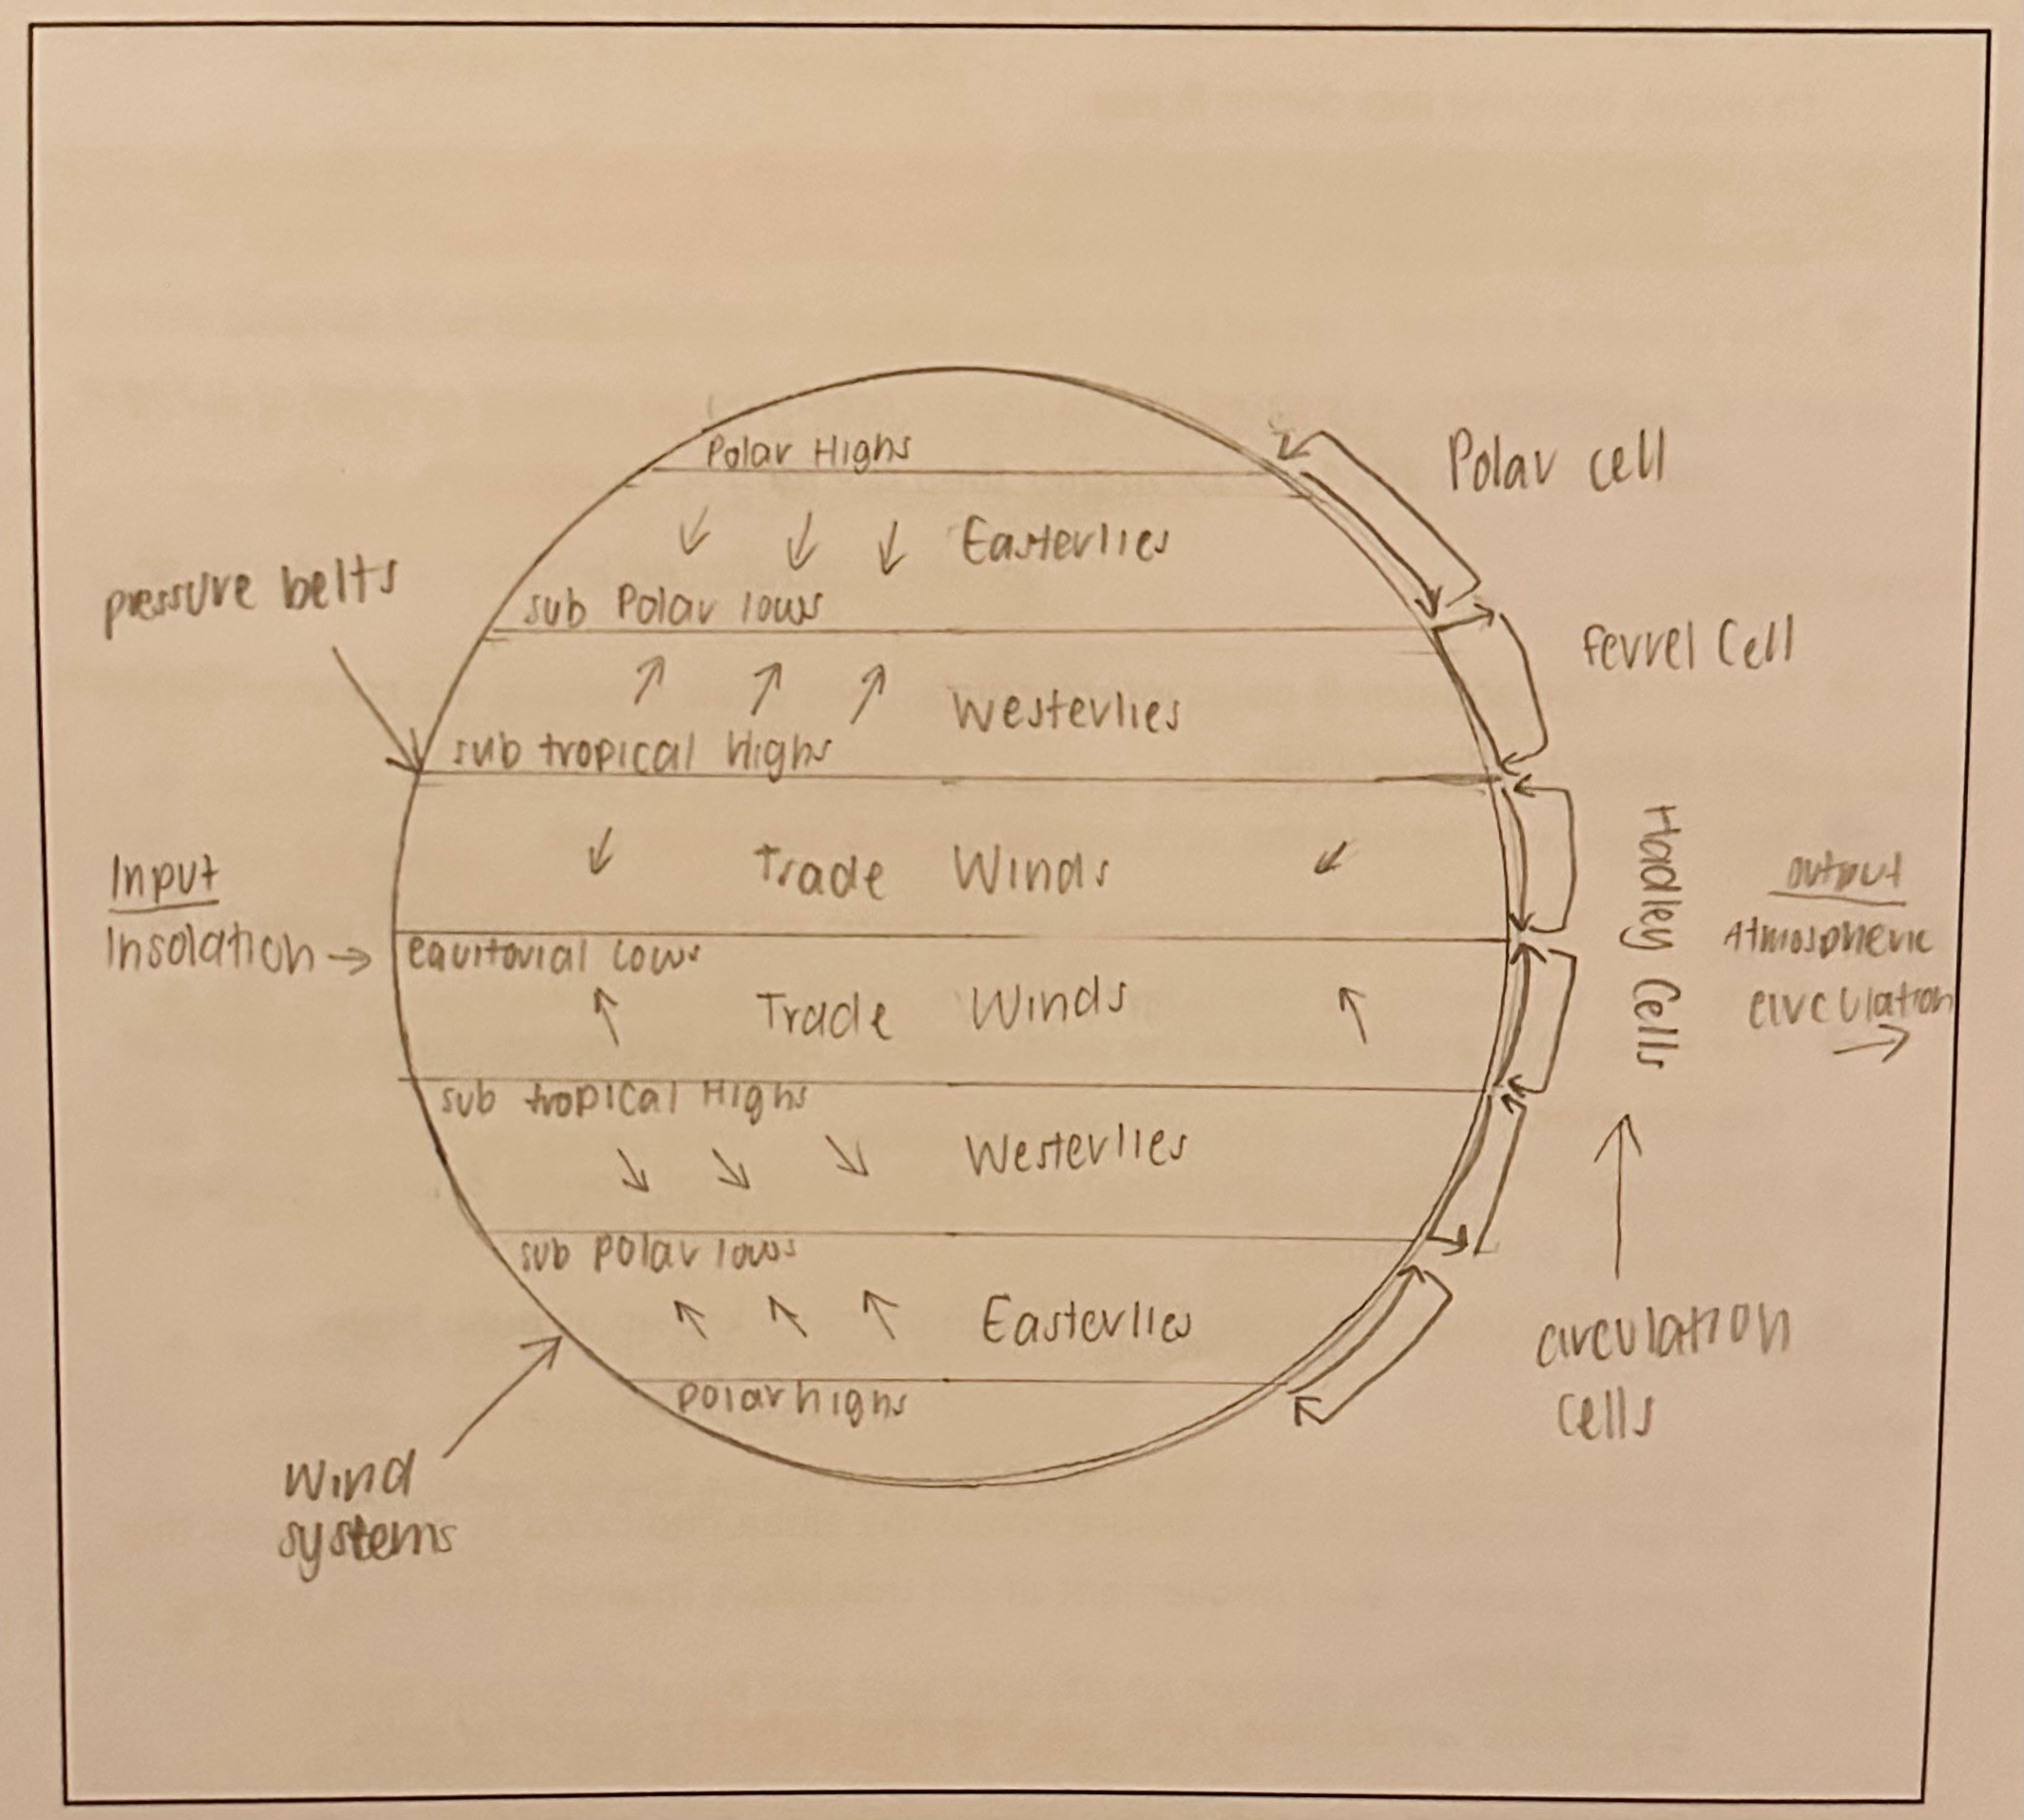 Polar Highs
Polar cell
Easterlies
pressure belts
sub Polar lows
Ferrel Cell
Westerlies
sub tropical Highs
Input
Insolation →
Trade Winds
Hadley Cells
output
Atmospheric
circulation
→
equitorial Lows
Trade Winds
sub tropical Highs
Westerlies
sub polar lows
Easterlies
circulation
cells
polar highs
Wind
systems